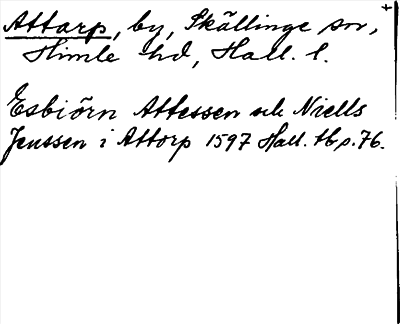 Attarp, by, Skällinge sn,
Himle hd, Hall. l.
Esbiörn Attessen och Niells
Jenssen i Attorp 1597 Hall. tb s. 76.